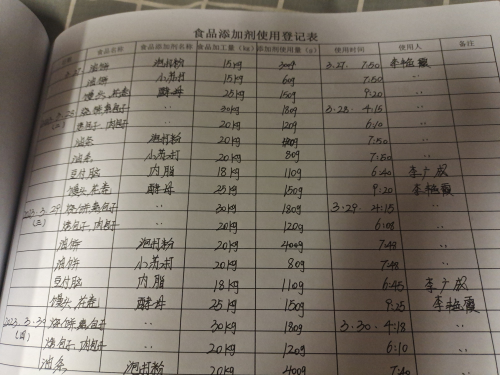 食品添加剂使用登记表
日期 食品名称 食品添加剂名称 食品加工量(kg) 添加剂使用量(g) 使用时间 使用人 备注
油饼 泡打粉 15kg 300g 3.27. 7:50
油饼 小苏打 15kg 60g 7:50 〃
馒头,花卷 酵母 25kg 150g 9:20 〃
〃 30kg 180g 3.28. 4:15 〃
肉包子 〃 20kg 120g 6:10 〃
油条 泡打粉 20kg 400g 7:50 〃
油条 小苏打 20kg 80g 7:50 〃
豆付脑 内脂 18kg 110g 6:40 李广成
馒头,花卷 酵母 25kg 150g 9:20
2023.3.29 〃 30kg 180g 3.29.4:15 〃
(三) 肉包子 〃 20kg 120g 6:08 〃
油饼 泡打粉 20kg 400g 7:48 〃
油饼 小苏打 20kg 80g 7:48 〃
豆付脑 内脂 18kg 110g 6:45 李广成
馒头,花卷 酵母 25kg 150g 9:25
2023.3.30 〃 30kg 180g 3.30.4:18 〃
(四) 肉包子 〃 20kg 120g 6:10 〃
油条 泡打粉 20kg 400g 7:40 〃